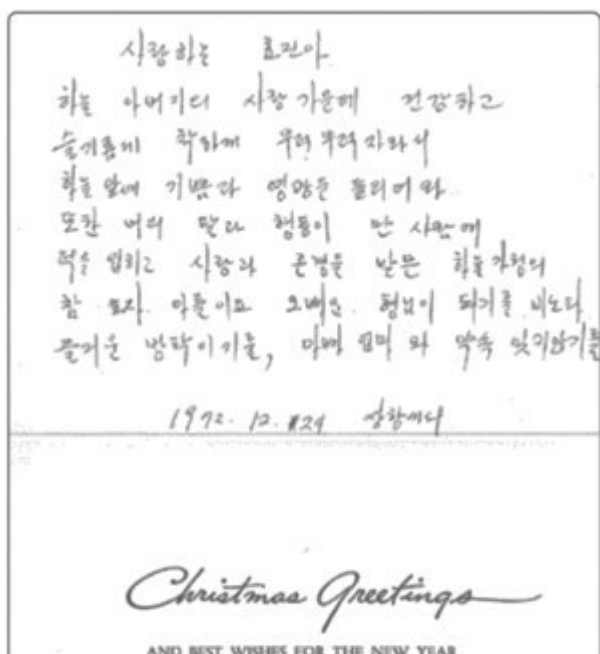 사랑하는 효진아
하늘 아버지의 사랑 가운데 건강하고
슬기롭게 착하게 무럭무럭 자라서
하늘 앞에 기쁨과 영광을 돌리어 와
또한 너의 말과 행동이 만 사람에
덕을 입히고 사랑과 존경을 받는 하늘 가정의
참 효자 아들이요 오빠요 형님이 되기를 비노라
즐거운 방학이기를, 아빠 엄마와 약속 잊지않기를
1972. 12. 24
Christmas Greetings
AND BEST WISHES FOR THE NEW YEAR